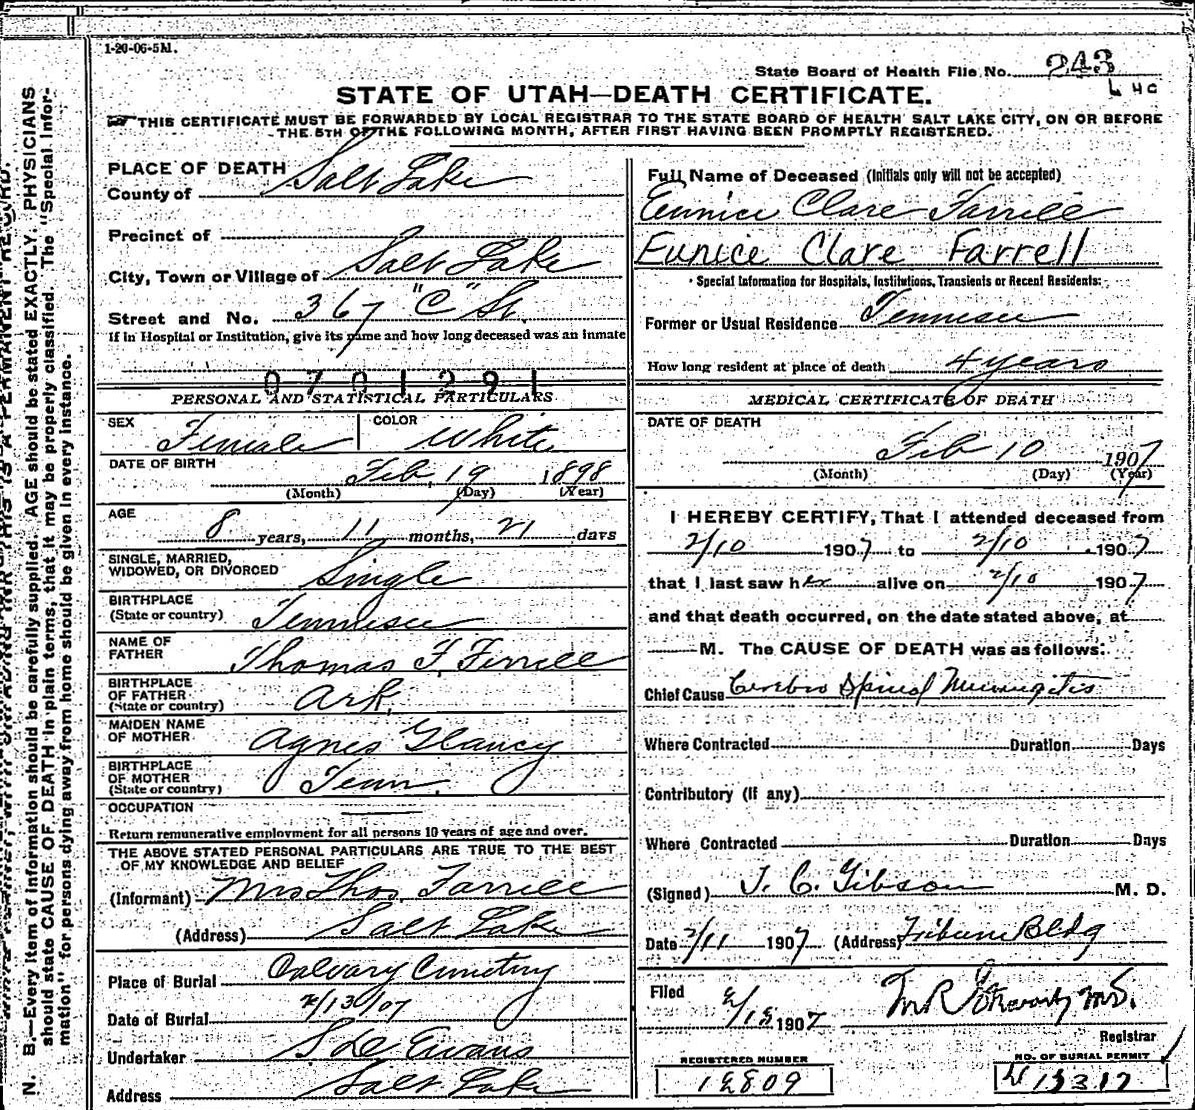 1-20-06-5M.
State Board of Health File No. 243
STATE OF UTAH—DEATH CERTIFICATE.
THIS CERTIFICATE MUST BE FORWARDED BY LOCAL REGISTRAR TO THE STATE BOARD OF HEALTH SALT LAKE CITY, ON OR BEFORE
THE 5TH OF THE FOLLOWING MONTH, AFTER FIRST HAVING BEEN PROMPTLY REGISTERED.
PLACE OF DEATH
County of Salt Lake
Precinct of
City, Town or Village of Salt Lake
Street and No. 367 "C" St.
If in Hospital or Institution, give its name and how long deceased was an inmate
0701291
PERSONAL AND STATISTICAL PARTICULARS
SEX Female COLOR White
DATE OF BIRTH Feb. 19 1898
(Month) (Day) (Year)
AGE
8 years, 11 months, 21 days
SINGLE, MARRIED,
WIDOWED, OR DIVORCED Single
BIRTHPLACE
(State or country) Tennessee
NAME OF
FATHER Thomas F. Ferrell
BIRTHPLACE
OF FATHER
(State or country) Ark.
MAIDEN NAME
OF MOTHER Agnes Glancy
BIRTHPLACE
OF MOTHER
(State or country) Tenn.
OCCUPATION
Return remunerative employment for all persons 10 years of age and over.
THE ABOVE STATED PERSONAL PARTICULARS ARE TRUE TO THE BEST
OF MY KNOWLEDGE AND BELIEF
(Informant) Mrs Thos. Farrell
(Address) Salt Lake
Place of Burial Calvary Cemetery
Date of Burial 2/13/07
Undertaker S de Evans
Address Salt Lake
Full Name of Deceased (Initials only will not be accepted)
Eunice Clare Farrell
Eunice Clare Farrell
Special Information for Hospitals, Institutions, Transients or Recent Residents:
Former or Usual Residence Tennessee
How long resident at place of death 4 years
MEDICAL CERTIFICATE OF DEATH
DATE OF DEATH
Feb 10 1907
(Month) (Day) (Year)
I HEREBY CERTIFY, That I attended deceased from
2/10 1907 to 2/10 1907
that I last saw her alive on 2/10 1907
and that death occurred, on the date stated above, at
M. The CAUSE OF DEATH was as follows:
Chief Cause Cerebro Spinal Meningitis
Where Contracted Duration Days
Contributory (If any)
Where Contracted Duration Days
(Signed) J. C. Gibson M. D.
Date 2/11 1907 (Address) Tribune Bldg
Filed 2/12 1907
Registrar
REGISTERED NUMBER
12809
NO. OF BURIAL PERMIT
N. B.—Every item of information should be carefully supplied. AGE should be stated EXACTLY. PHYSICIANS
should state CAUSE OF DEATH in plain terms, that it may be properly classified. The "Special Infor-
mation" for persons dying away from home should be given in every instance.